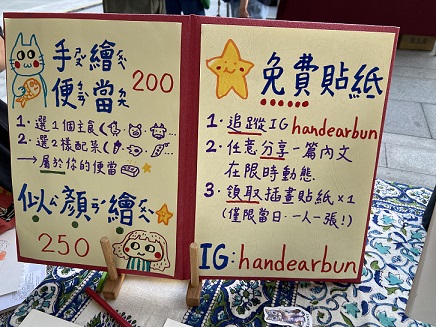 手繪
便當 200
1. 選1個主食(
2. 選2樣配菜(
→屬於你的便當
似顏繪
250
免費貼紙
1. 追蹤IG handearbun
2. 任意分享一篇內文
在限時動態
3. 領取插畫貼紙×1
(僅限當日·一人一張!)
IG: handearbun